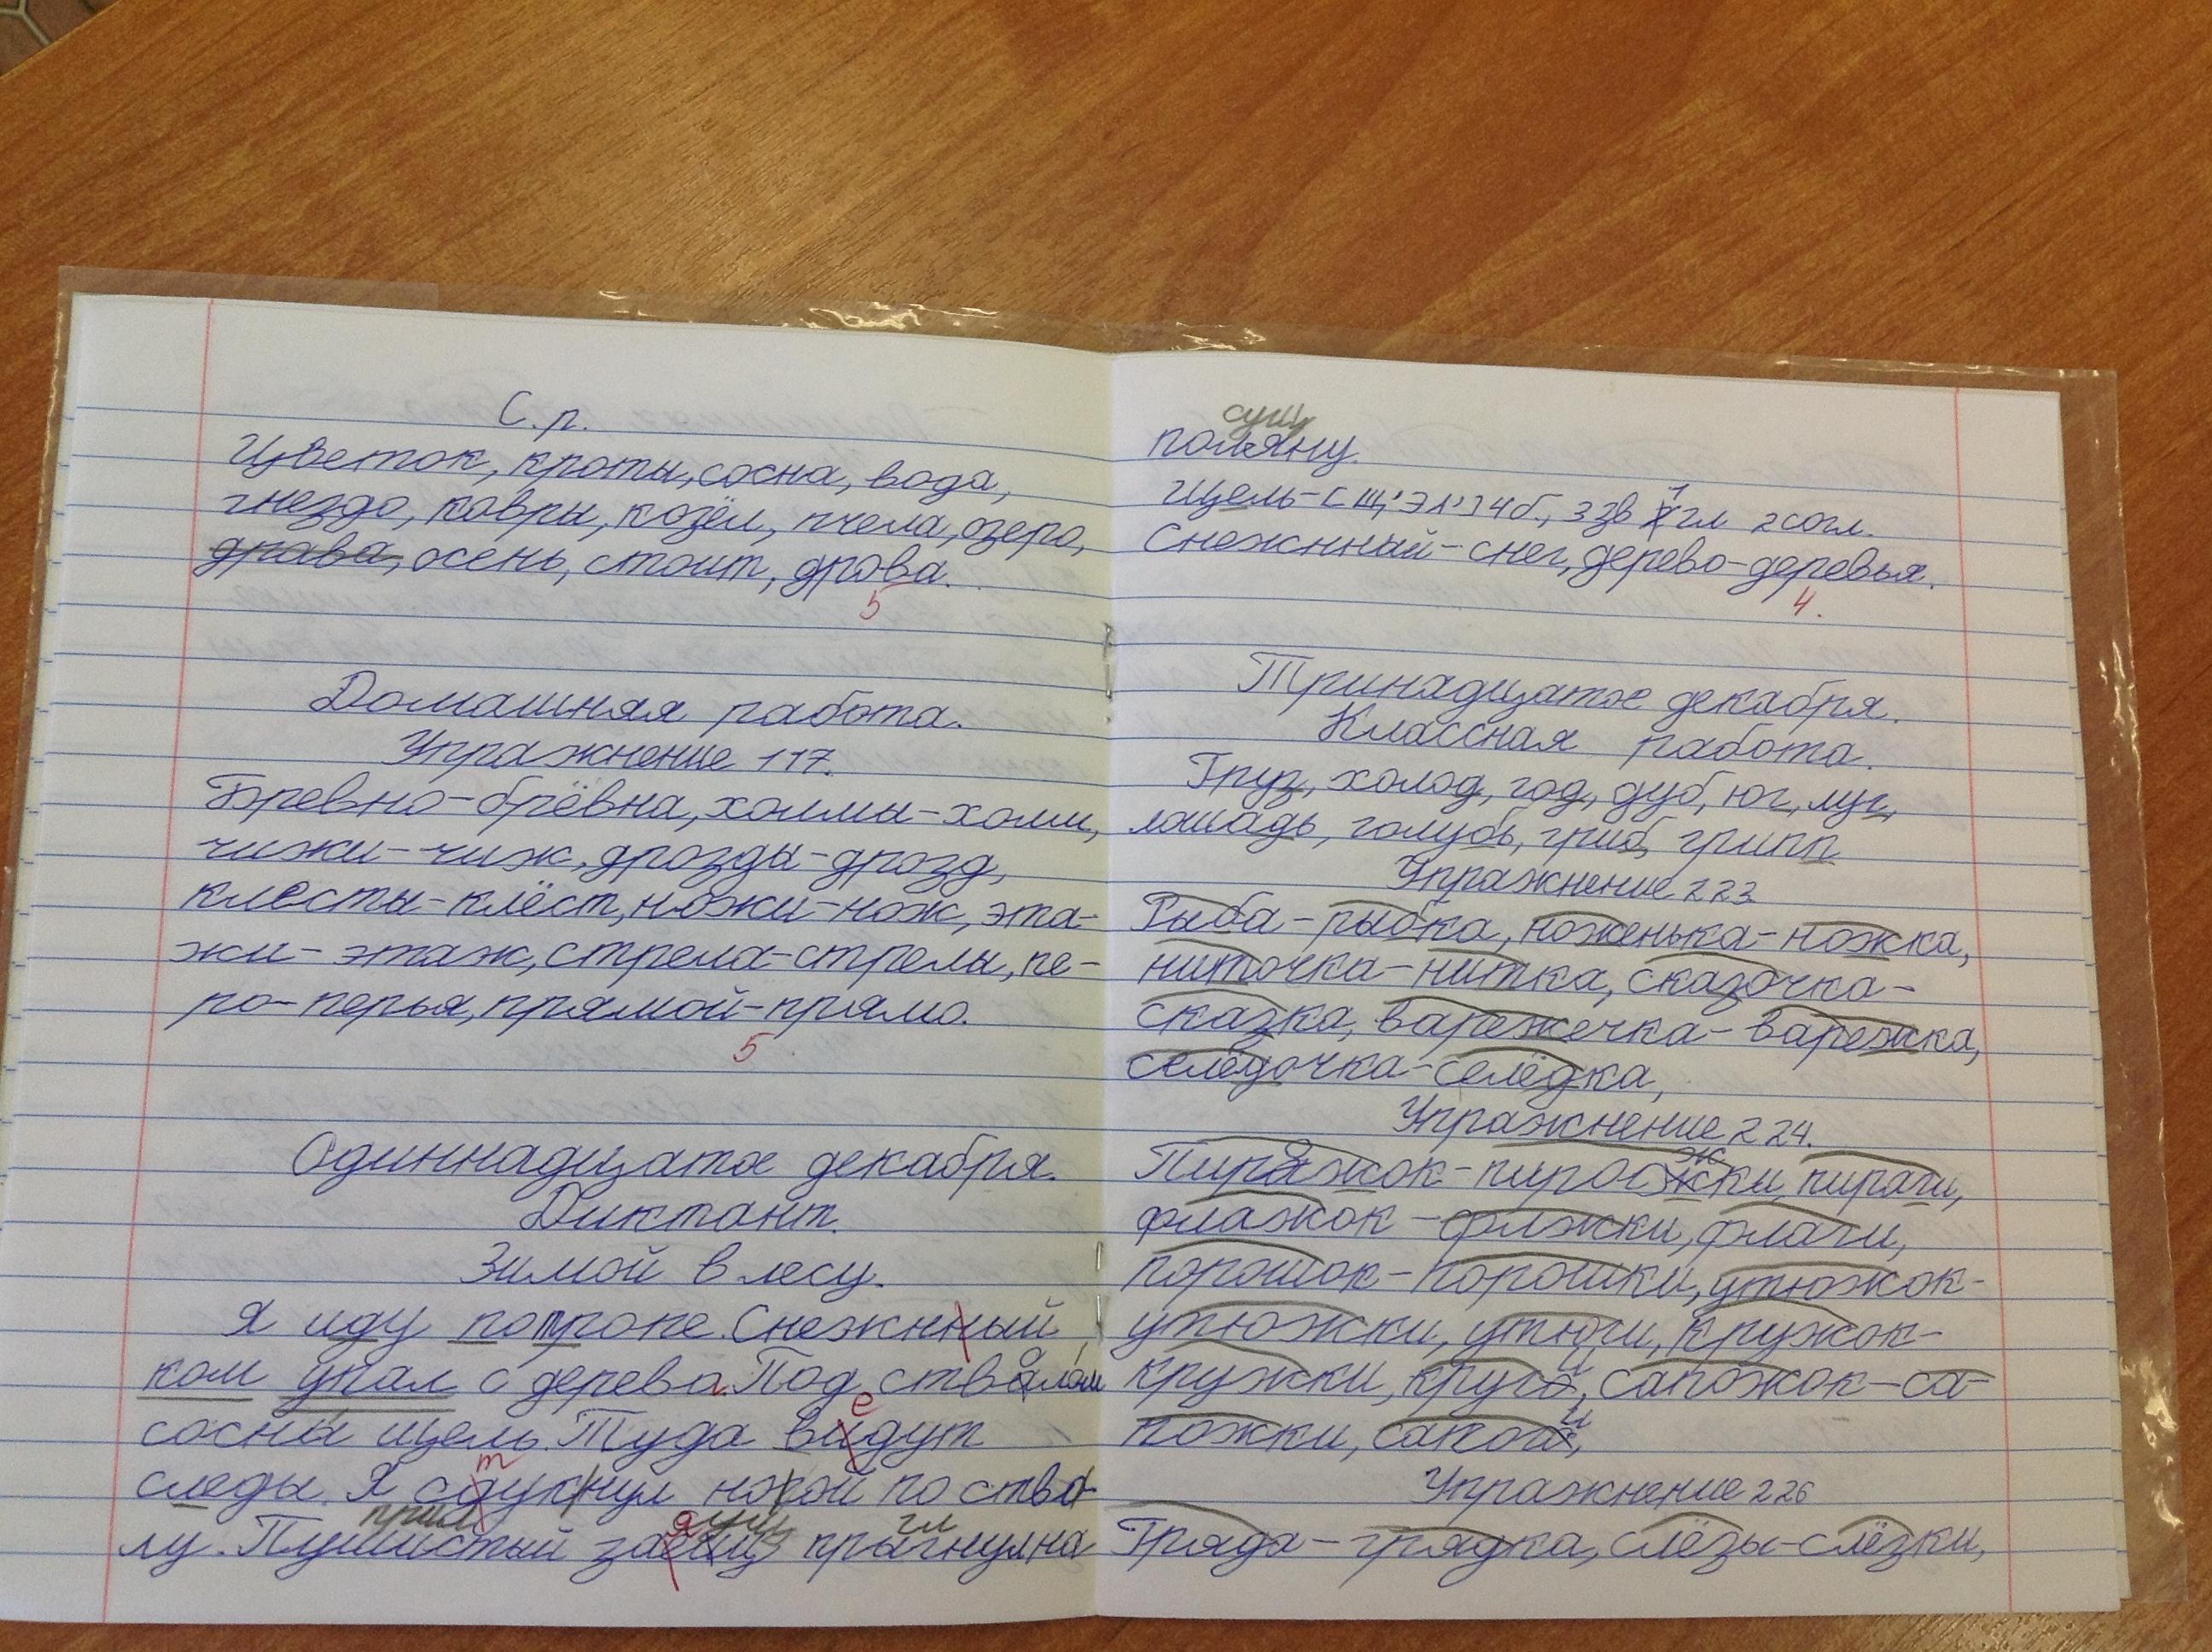 С.р.
Цветок, кроты, сосна, вода,
гнездо, ковры, козёл, пчела, озеро,
драва, осень, стоит, дрова.
5
Домашняя работа.
Упражнение 117.
Бревно-брёвна, холмы-холм,
чижи-чиж, дрозды-дрозд,
клесты-клёст, ножи-нож, эта-
жи-этаж, стрела-стрелы, пе-
ро-перья, прямой-прямо.
5
Одиннадцатое декабря.
Диктант.
Зимой в лесу.
Я иду по тропе. Снежнный
ком упал с дерева. Под стволом
е
сосны щель. Туда видут
т
следы. Я сдукнул ногой по ство-
прил я сущ гл
лу. Пушистый заец прыгнул на
сущ
поляну.
1
Щель-[щ,'эл,'] 4б., 3зв гл 2согл.
Снежнный-снег, дерево-деревья.
4.
Тринадцатое декабря.
Классная работа.
Груз, холод, год, дуб, юг, луг,
лошадь, голубь, гриб, грипп
Упражнение 223
Рыба-рыбка, ноженька-ножка,
ниточка-нитка, сказочка-
сказка, варежечка-варежка,
селёдочка-селёдка,
Упражнение 224.
Пирожок-пирожки, пироги,
флажок-фляжки, флаги,
порошок-порошки, утюжок-
утюжки, утюги, кружок-
кружки, круги, сапожок-са-
пожки, сапоги,
Упражнение 226
Гряда-грядка, слёзы-слёзки,